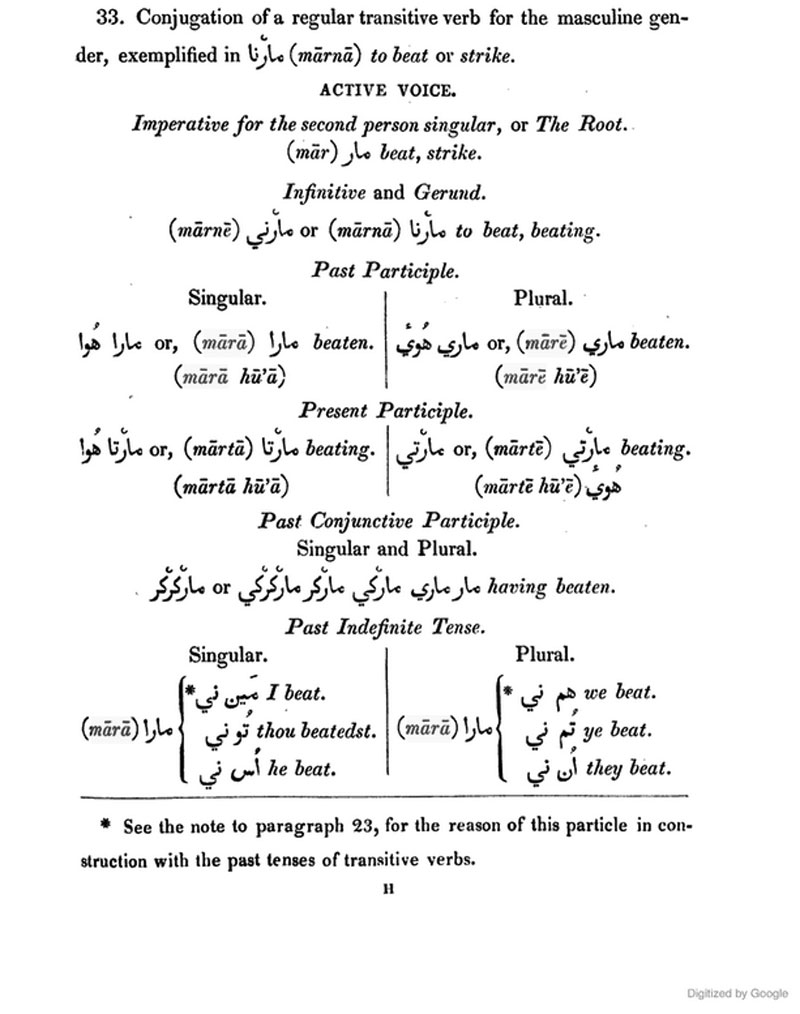 33. Conjugation of a regular transitive verb for the masculine gen-
der, exemplified in مارْنا (mārnā) to beat or strike.
ACTIVE VOICE.
Imperative for the second person singular, or The Root.
(mār) مار beat, strike.
Infinitive and Gerund.
(mārnē) مارْني or (mārnā) مارْنا to beat, beating.
Past Participle.
Singular.
مارا هُوا or, (mārā) مارا beaten.
(mārā hū'ā)
Plural.
ماري هُوئي or, (mārē) ماري beaten.
(mārē hū'ē)
Present Participle.
مارْتا هُوا or, (mārtā) مارْتا beating.
(mārtā hū'ā)
مارْتي or, (mārtē) مارْتي beating.
(mārtē hū'ē) هُوئي
Past Conjunctive Participle.
Singular and Plural.
مار ماري مارْكي مارْكر مارْكرْكي or مارْكرْكر having beaten.
Past Indefinite Tense.
Singular.
(mārā) مارا
* مَين ني I beat.
تُو ني thou beatedst.
اُس ني he beat.
Plural.
(mārā) مارا
* هم ني we beat.
تُم ني ye beat.
اُن ني they beat.
* See the note to paragraph 23, for the reason of this particle in con-
struction with the past tenses of transitive verbs.
H
Digitized by Google